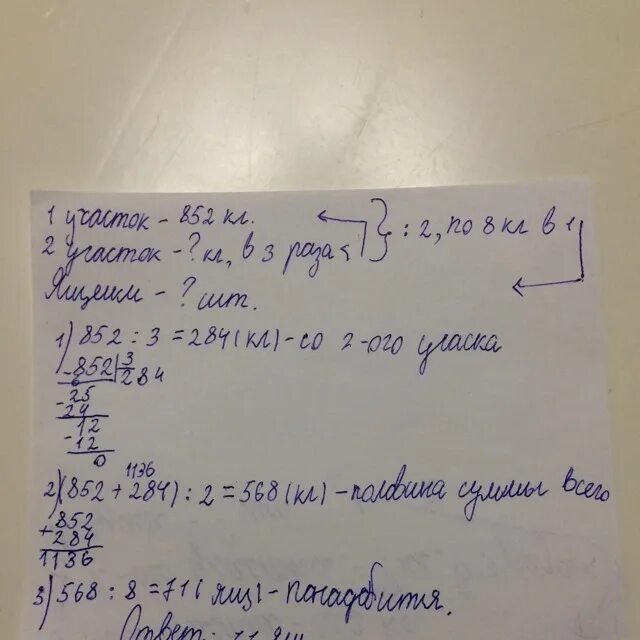 1 участок - 852 кл.
2 участок - ? кл, в 3 раза < } : 2, по 8 кл в 1
Ящики - ? шт.
1) 852 : 3 = 284 (кл) - со 2-ого угаска
- 852 | 3
6 284
- 25
24
12
- 12
0
1136
2) (852 + 284) : 2 = 568 (кл) - половина суммы всего
852
+ 284
1136
3) 568 : 8 = 71 ( ящ) - понадобится.
Ответ: